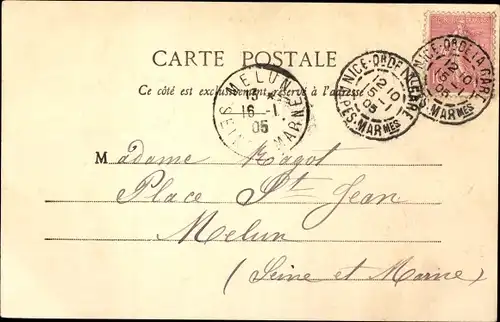 CARTE POSTALE
Ce côté est exclusivement réservé à l'adresse
MELUN
16 -1
05
SEINE MARNE
NICE-QR DE LA GARE
12 10
15 -1
05
ALPES-MARMES
NICE-QR DE LA GARE
12 10
15 -1
05
ALPES-MARMES
Madame Magot
Place St Jean
Melun
(Seine et Marne)